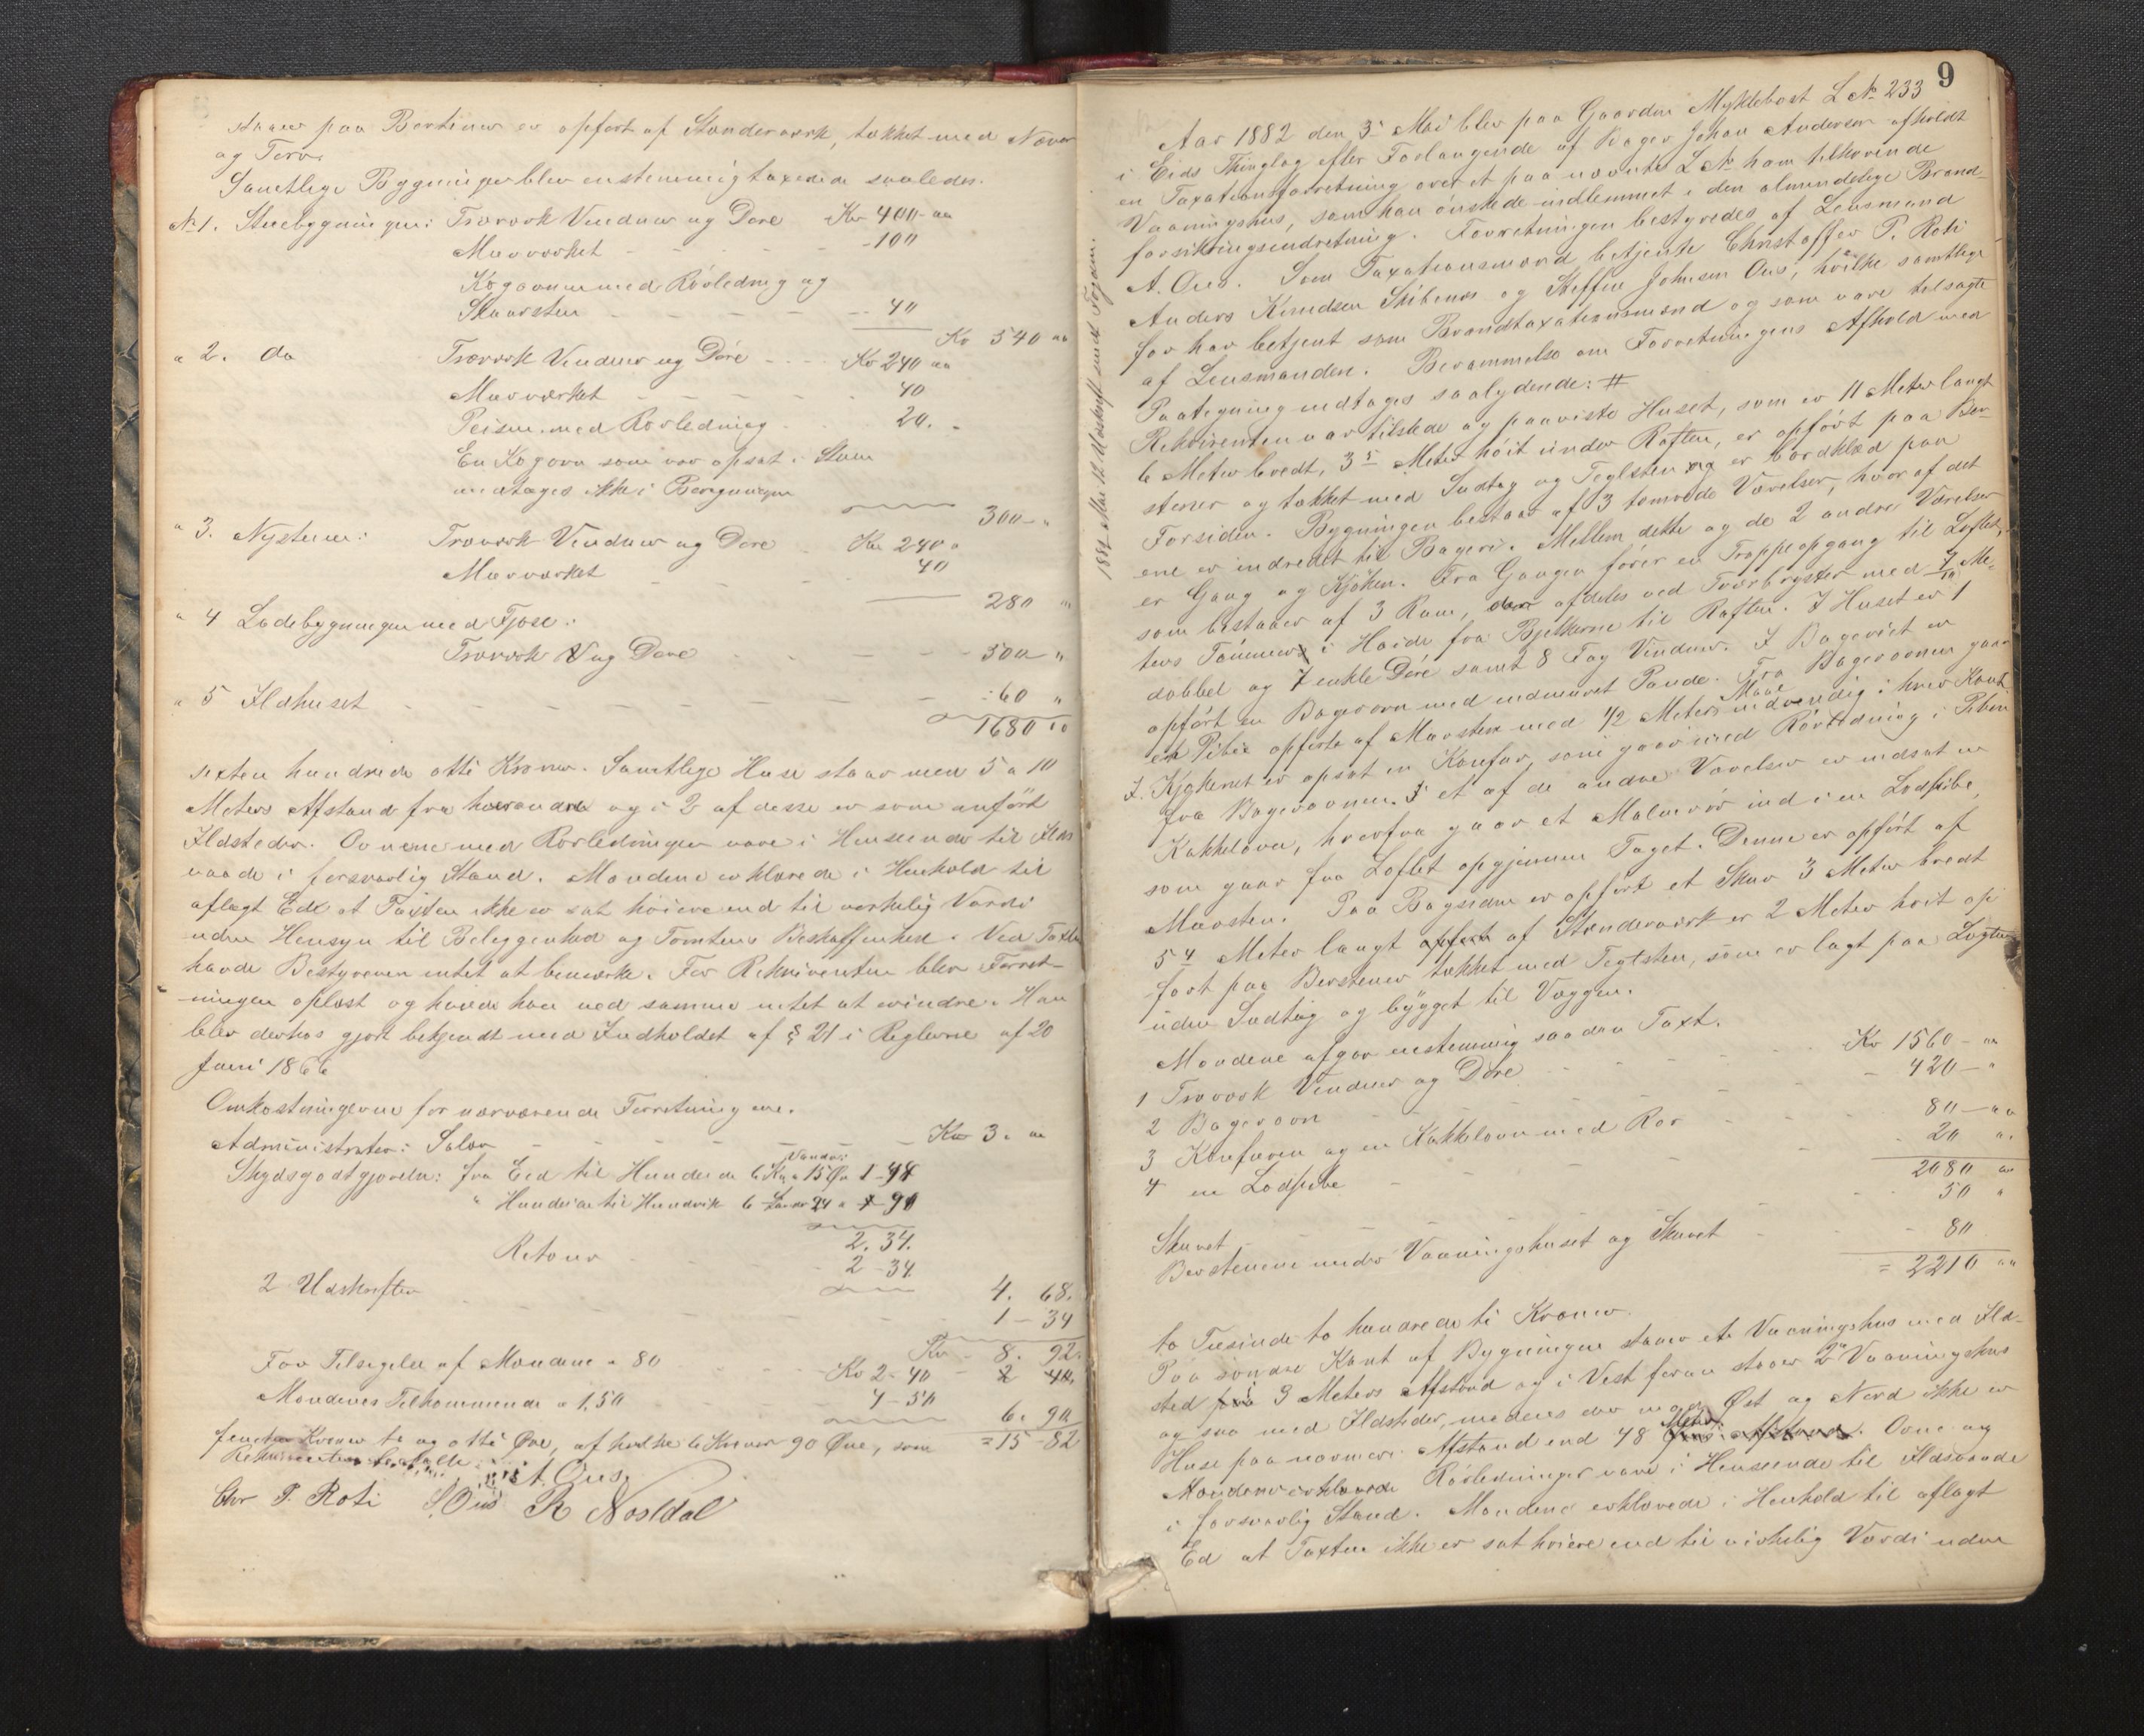 staaer paa Berstener er opført af Stænderværk, tækket med Næver
og Torv.
Samtlige Bygninger blev enstemmig taxerede saaledes.
No 1. Stuebygningen: Træverk Vinduer og Døre Kr 400 - "
Muurværket - - - - 100
Kogeovnen med Rörledning og
Skorsten - - - - 40
Kr 540 "
" 2. do Træverk Vinduer og Döre - - Kr 240 "
Muurværket - - - - 40
Peisen med Rørledning 20. -
En Kogeovn som var opsat i Stuen
medtages ikke i Beregningen
300 - "
" 3. Nystuen: Træværk Vinduer og Døre Kr 240 "
Muurværket - - - 40
280 "
" 4 Ladebygningen med Fjøse:
Træværk V og Døre - - - - 500 "
" 5 Ildhuset - - - - - - 60 "
1680 "
sexten hundrede otti Kroner. Samtlige Huse staar med 5 a 10
Meters Afstand fra hverandre og i 2 af disse er som anført
Ildsteder. Ovnene med Rørledninger vare i Henseende til Ilds
vaade i forsvarlig Stand. Mændene erklærede i Henhold til
aflagt Ed at Taxten ikke er sat høiere end til virkelig Værdi
uden Hensyn til Beliggenhed og Tomtens Beskaffenhed. Ved Taxten
havde Bestyreren intet at bemærke. For Rekvirenten blev Forret-
ningen oplæst og havde han ved samme intet at erindre. Han
blev derhos gjort bekjendt med Indholdet af § 21 i Reglerne af 20
Juni 1866
Omkostningerne for nærværende Forretning ere.
Administrator: Salær - - - - - Kr 3. "
Skydsgodtgjørelse: fra Eid til Hundeide 6 Km a 15 Øre 1 - 44
" Hundeide til Hundvik 6 24 a - 90
2. 34.
Retour 2 - 34
4. 68.
2 Udskrifter - - - - - 1 - 34
Kr 8. 92.
For Tilsigelse af Mændene a 80 - - - Kr 2 - 40 - 2 40.
Mændenes Tilkommende a 1,50 - - 4 - 50
6. 90
femten Kroner to og otti Øre, af hvilke 6 Kroner 90 Øre, som = 15 - 82
Rekvirenten betalte.
A. Ous.
Chr P. Roti S. Ous R Nosldal
9
Aar 1882 den 3 Mai blev paa Gaarden Myklebost L No 233
i Eids Thinglag efter Forlangende af Bager Johan Andersen afholdt
en Taxationsforretning over et paa nævnte L No ham tilhørende
Vaaningshus, som han ønskede indlemmet i den almindelige Brand-
forsikringsindretning. Forretningen bestyredes af Lensmand
A. Ous. Som Taxationsmænd betjente Christoffer P. Roti
Anders Knudsen Skibenes og Steffen Johnsen Ous, hvilke samtlige
før har betjent som Brandtaxationsmænd og som vare tilsagte
af Lensmanden. Berammelse om Forretningens Afhold med
Paategning medtages saalydende: #
Rekvirenten var tilstede og paaviste Huset, som er 11 Meter langt
6 Meter bredt, 3 5 Meter høit under Raften, er opført paa Ber-
stener og tækket med Sudtag og Teglsten og er bordklæd paa
Forsiden. Bygningen bestaar af 3 tømrede Værelser, hvoraf det
ene er indredet til Bageri. Mellem dette og de 2 andre Værelser
er Gang og Kjøken. Fra Gangen fører en Trappeopgang til Loftet,
som bestaaer af 3 Rum, der afdeles ved Tværbryster med 7/10 Me-
ters Tømmer i Høide fra Bjelkerne til Raften. I Huset er 1
dobbel og 7 enkle Døre samt 8 Fag Vinduer. I Bageriet er
opført en Bagerovn med indmuret Pande. Fra Bagerovnen gaar
en Pibe opførte af Muursten med 1/2 Meters Maal indvendig i hver Kant
I Kjøkenet er opsat en Komfur, som gaar med Rørledning i Piben
fra Bagerovnen. I et af de andre Værelser er indsat en
Kakkelovn, hvorfra gaar et Malmrør ind i en Lodpibe,
som gaar fra Loftet opgjennem Taget. Denne er opført af
Muursten. Paa Bagsiden er opført et Skur 3 Meter bredt
5 4 Meter langt opført af Stænderværk er 2 Meter høit op
ført paa Berstener tækket med Teglsten, som er lagt paa Lægter
uden Sudtag og bygget til Væggen.
Mændene afgav enstemmig saadan Taxt.
1 Træværk Vinduer og Døre - - - Kr 1560 - "
2 Bagerovn - - - - 420 - "
3 Komfuren og en Kakkelovn med Rør - - 80 - "
4 en Lodpibe - - - 20 "
2080 "
Skuret - - - - 50 "
Berstenene under Vaaningshuset og Skuret - - 80
= 2210 "
to Tusinde to hundrede ti Kroner.
Paa søndre Kant af Bygningen staaer et Vaaningshus med Ild-
sted paa 3 Meters Afstand og i Vest foran staaer 2 Vaaningshus
og saa med Ildsteder, medens der mod Øst og Nord ikke er
Huse paa nærmere Afstand end 48 Meter. Ovne og
Rørledninger vare i Henseende til Ildsvaade
i forsvarlig Stand. Mændene erklærede i Henhold til aflagt
Ed at Taxten ikke er sat høiere end til virkelig Værdi uden